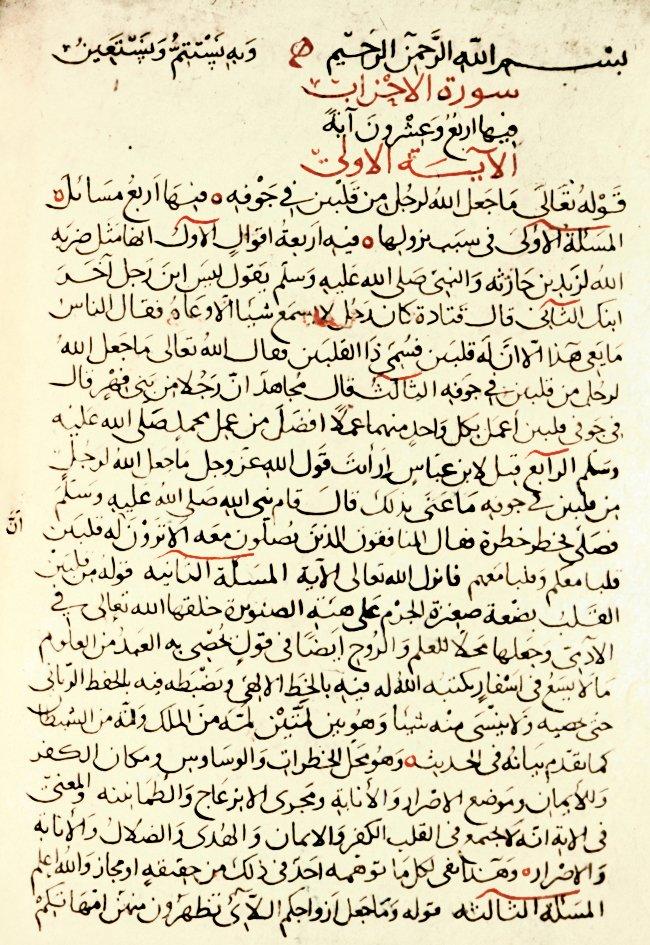 بسم الله الرحمن الرحيم وبه نستتم ونستعين
سورة الاحزاب
فيها اربع وعشرون آية
الآيـة الاولى
قوله تعالى ما جعل الله لرجل من قلبين في جوفه فيها اربع مسائل
المسئلة الاولى في سبب نزولها فيه اربعة اقوال الاول انها مثل ضربه
الله لزيد بن حارثه والنبي صلى الله عليه وسلم يقول ليس ابن رجل آخر
ابنك الثاني قال قتادة كان رجل لا يسمع شيئا الا وعاه فقال الناس
ما يعي هذا الا ان له قلبين فسمي ذا القلبين فقال الله تعالى ما جعل الله
لرجل من قلبين في جوفه الثالث قال مجاهد ان رجلا من بني فهر قال
في جوفي قلبين أعمل بكل واحد منهما عملا افضل من عمل محمد صلى الله عليه
وسلم الرابع قيل لابن عباس ارأيت قول الله عز وجل ما جعل الله لرجل
من قلبين في جوفه ما عنى بذلك قال قام نبي الله صلى الله عليه وسلم
فصلى فخطر خطرة فقال المنافقون الذين يصلون معه الا ترون له قلبين
ان
قلبا معكم وقلبا معهم فانزل الله تعالى الآية المسئلة الثانيه قوله من قلبين
القلب بضعة صغيرة الجرم على هيئة الصنوبرة خلقها الله تعالى في
الآدمي وجعلها محلا للعلم والروح ايضا في قول يحصي به العبد من العلوم
ما لا يسع في اسفار يكتبه الله له فيه بالخط الالهي ويضبطه فيه بالحفظ الرباني
حتى يحصيه ولا ينسى منه شيئا وهو بين لمتين لمة من الملك ولمة من الشيطان
كما تقدم بيانه في الحديث وهو محل الخطرات والوساوس ومكان الكفر
والايمان وموضع الاصرار والأنابة ومجرى الانزعاج والطمانينه والمعنى
في الاية انه لا يجتمع في القلب الكفر والايمان والهدى والضلال والأنابة
والاصرار وهذا نفي لكل ما توهمه احد في ذلك من حقيقه او مجاز والله اعلم
المسئلة الثالثه قوله وما جعل ازواجكم اللآئي تظهرون منهن امهاتكم